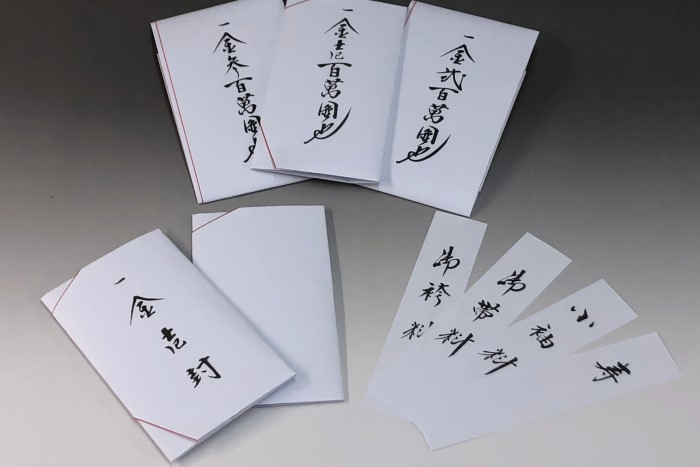 一金参百萬圓也
一金壱百萬圓也
一金弐百萬圓也
一金壱封
御袴料
御帯料
小袖料
寿